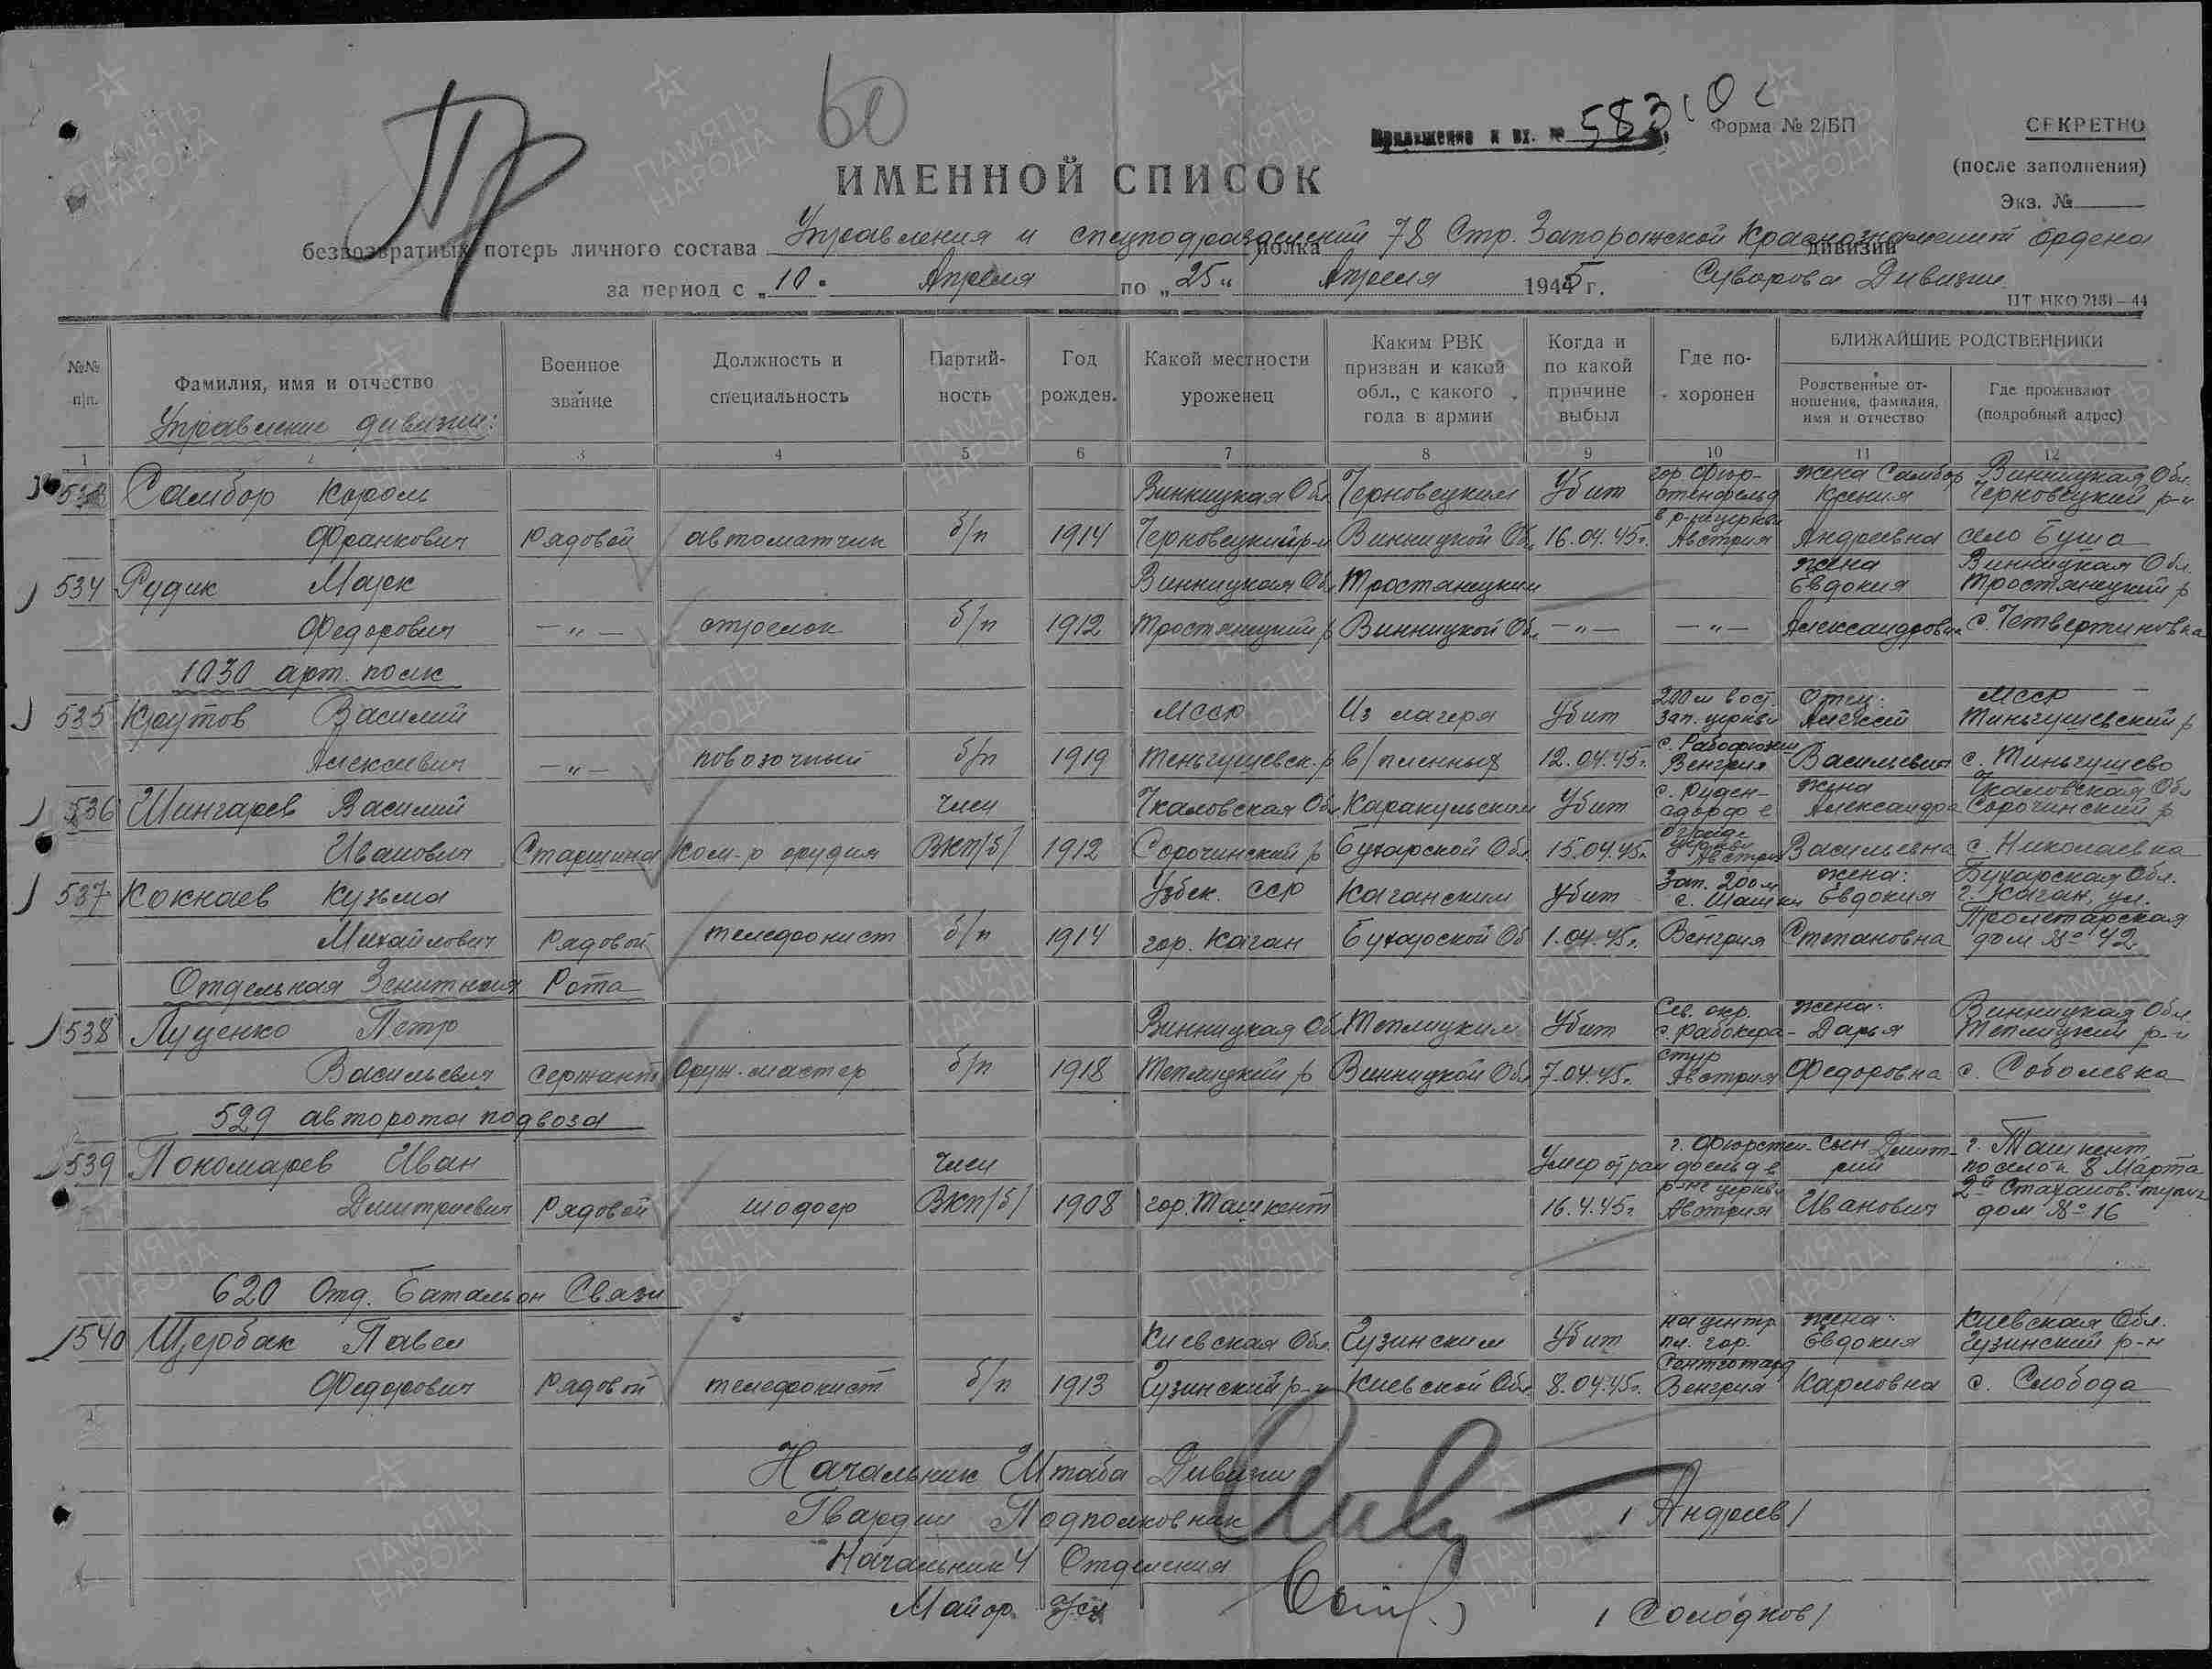 60
Пр
Приложение к вх. №
Форма № 2/БП
СЕКРЕТНО
(после заполнения)
Экз. №
ИМЕННОЙ СПИСОК
безвозвратных потерь личного состава Управления и спецподразделений полка 78 Стр. Запорожской Краснознаменной ордена дивизии
за период с „10" Апреля по „25" Апреля 1945 г. Суворова Дивизии
ЦТ НКО 2151—44
№№ п|п.
Фамилия, имя и отчество
Военное звание
Должность и специальность
Партийность
Год рожден.
Какой местности уроженец
Каким РВК призван и какой обл., с какого года в армии
Когда и по какой причине выбыл
Где похоронен
БЛИЖАЙШИЕ РОДСТВЕННИКИ
Родственные отношения, фамилия, имя и отчество
Где проживают (подробный адрес)
Управление дивизии:
1 2 3 4 5 6 7 8 9 10 11 12
Самбор Кароль Винницкая Обл. Черновецким Убит гор. Фюрстенфельд жена Самбор Ксения Винницкая Обл. Черновецкий р-н
Франкович Рядовой автоматчик б/п 1914 Черновецкий р-н Винницкой Обл. 16.04.45г. в р-не церкви Австрия Андреевна село Буша
534 Рудик Марк Винницкая Обл. Тростянецким жена Евдокия Винницкая Обл. Тростянецкий р
Федорович —„— стрелок б/п 1912 Тростянецкий р Винницкой Обл. —„— —„— Александровна с. Четвертиновка
1030 арт. полк
535 Кроутов Василий МССР Из лагеря Убит 200м вост. зап. церкви Отец: Алексей МССР Теньгушевский р
Алексеевич —„— повозочный б/п 1919 Теньгушевск. р в/пленных 12.04.45г. Венгрия Васильевич с. Теньгушево
536 Шингарев Василий член Чкаловская Обл. Каракульским Убит жена Александра Чкаловская Обл. Сорочинский р
Иванович Старшина Ком-р орудия ВКП/б/ 1912 Сорочинский р Бухарской Обл. 15.04.45г. Австрия Васильевна с. Николаевка
537 Кокнаев Кузьма Узбек. ССР Каганским Убит зап. 200м жена: Евдокия Бухарская Обл. г. Каган, ул.
Михайлович Рядовой телефонист б/п 1914 гор. Каган Бухарской Об 1.04.45г. Венгрия Степановна Пролетарская дом № 42
Отдельная Зенитная Рота
538 Луценко Петр Винницкая Об. Теплицким Убит Сев. окр. жена: Дарья Винницкая Обл. Теплицкий р-н
Васильевич сержант Оруж.-мастер б/п 1918 Теплицкий р Винницкой Обл. 7.04.45г. Австрия Федоровна с. Соболевка
529 авторота подвоза
539 Пономарев Иван член Умер от ран г. Фюрстенфельд в сын Дмитрий г. Ташкент поселок 8 Марта
Дмитриевич Рядовой шофер ВКП/б/ 1908 гор. Ташкент 16.4.45г. р-не церкви Австрия Иванович 2й Стаханов. тупик дом № 16
620 Отд. Батальон Связи
540 Щербак Павел Киевская Обл. Бузинским Убит на центр. пл. гор. жена: Евдокия Киевская Обл. Бузинский р-н
Федорович Рядовой телефонист б/п 1913 Бузинский р-н Киевской Обл. 8.04.45г. Сентготард Венгрия Карловна с. Слобода
Начальник Штаба Дивизии
Гвардии Подполковник /Андреев/
Начальник 4 Отделения
Майор /Солодков/
ПАМЯТЬ НАРОДА